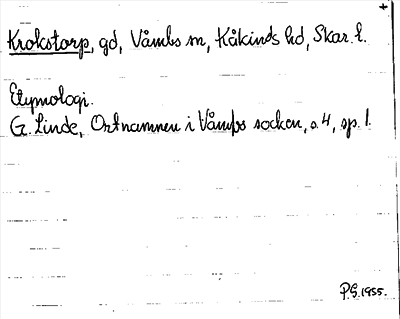 Krokstorp, gd, Våmbs sn, Kåkinds hd, Skar. l.
Etymologi.
G. Linde, Ortnamnen i Våmbs socken, s. 4, sp. 1.
P.G. 1955.